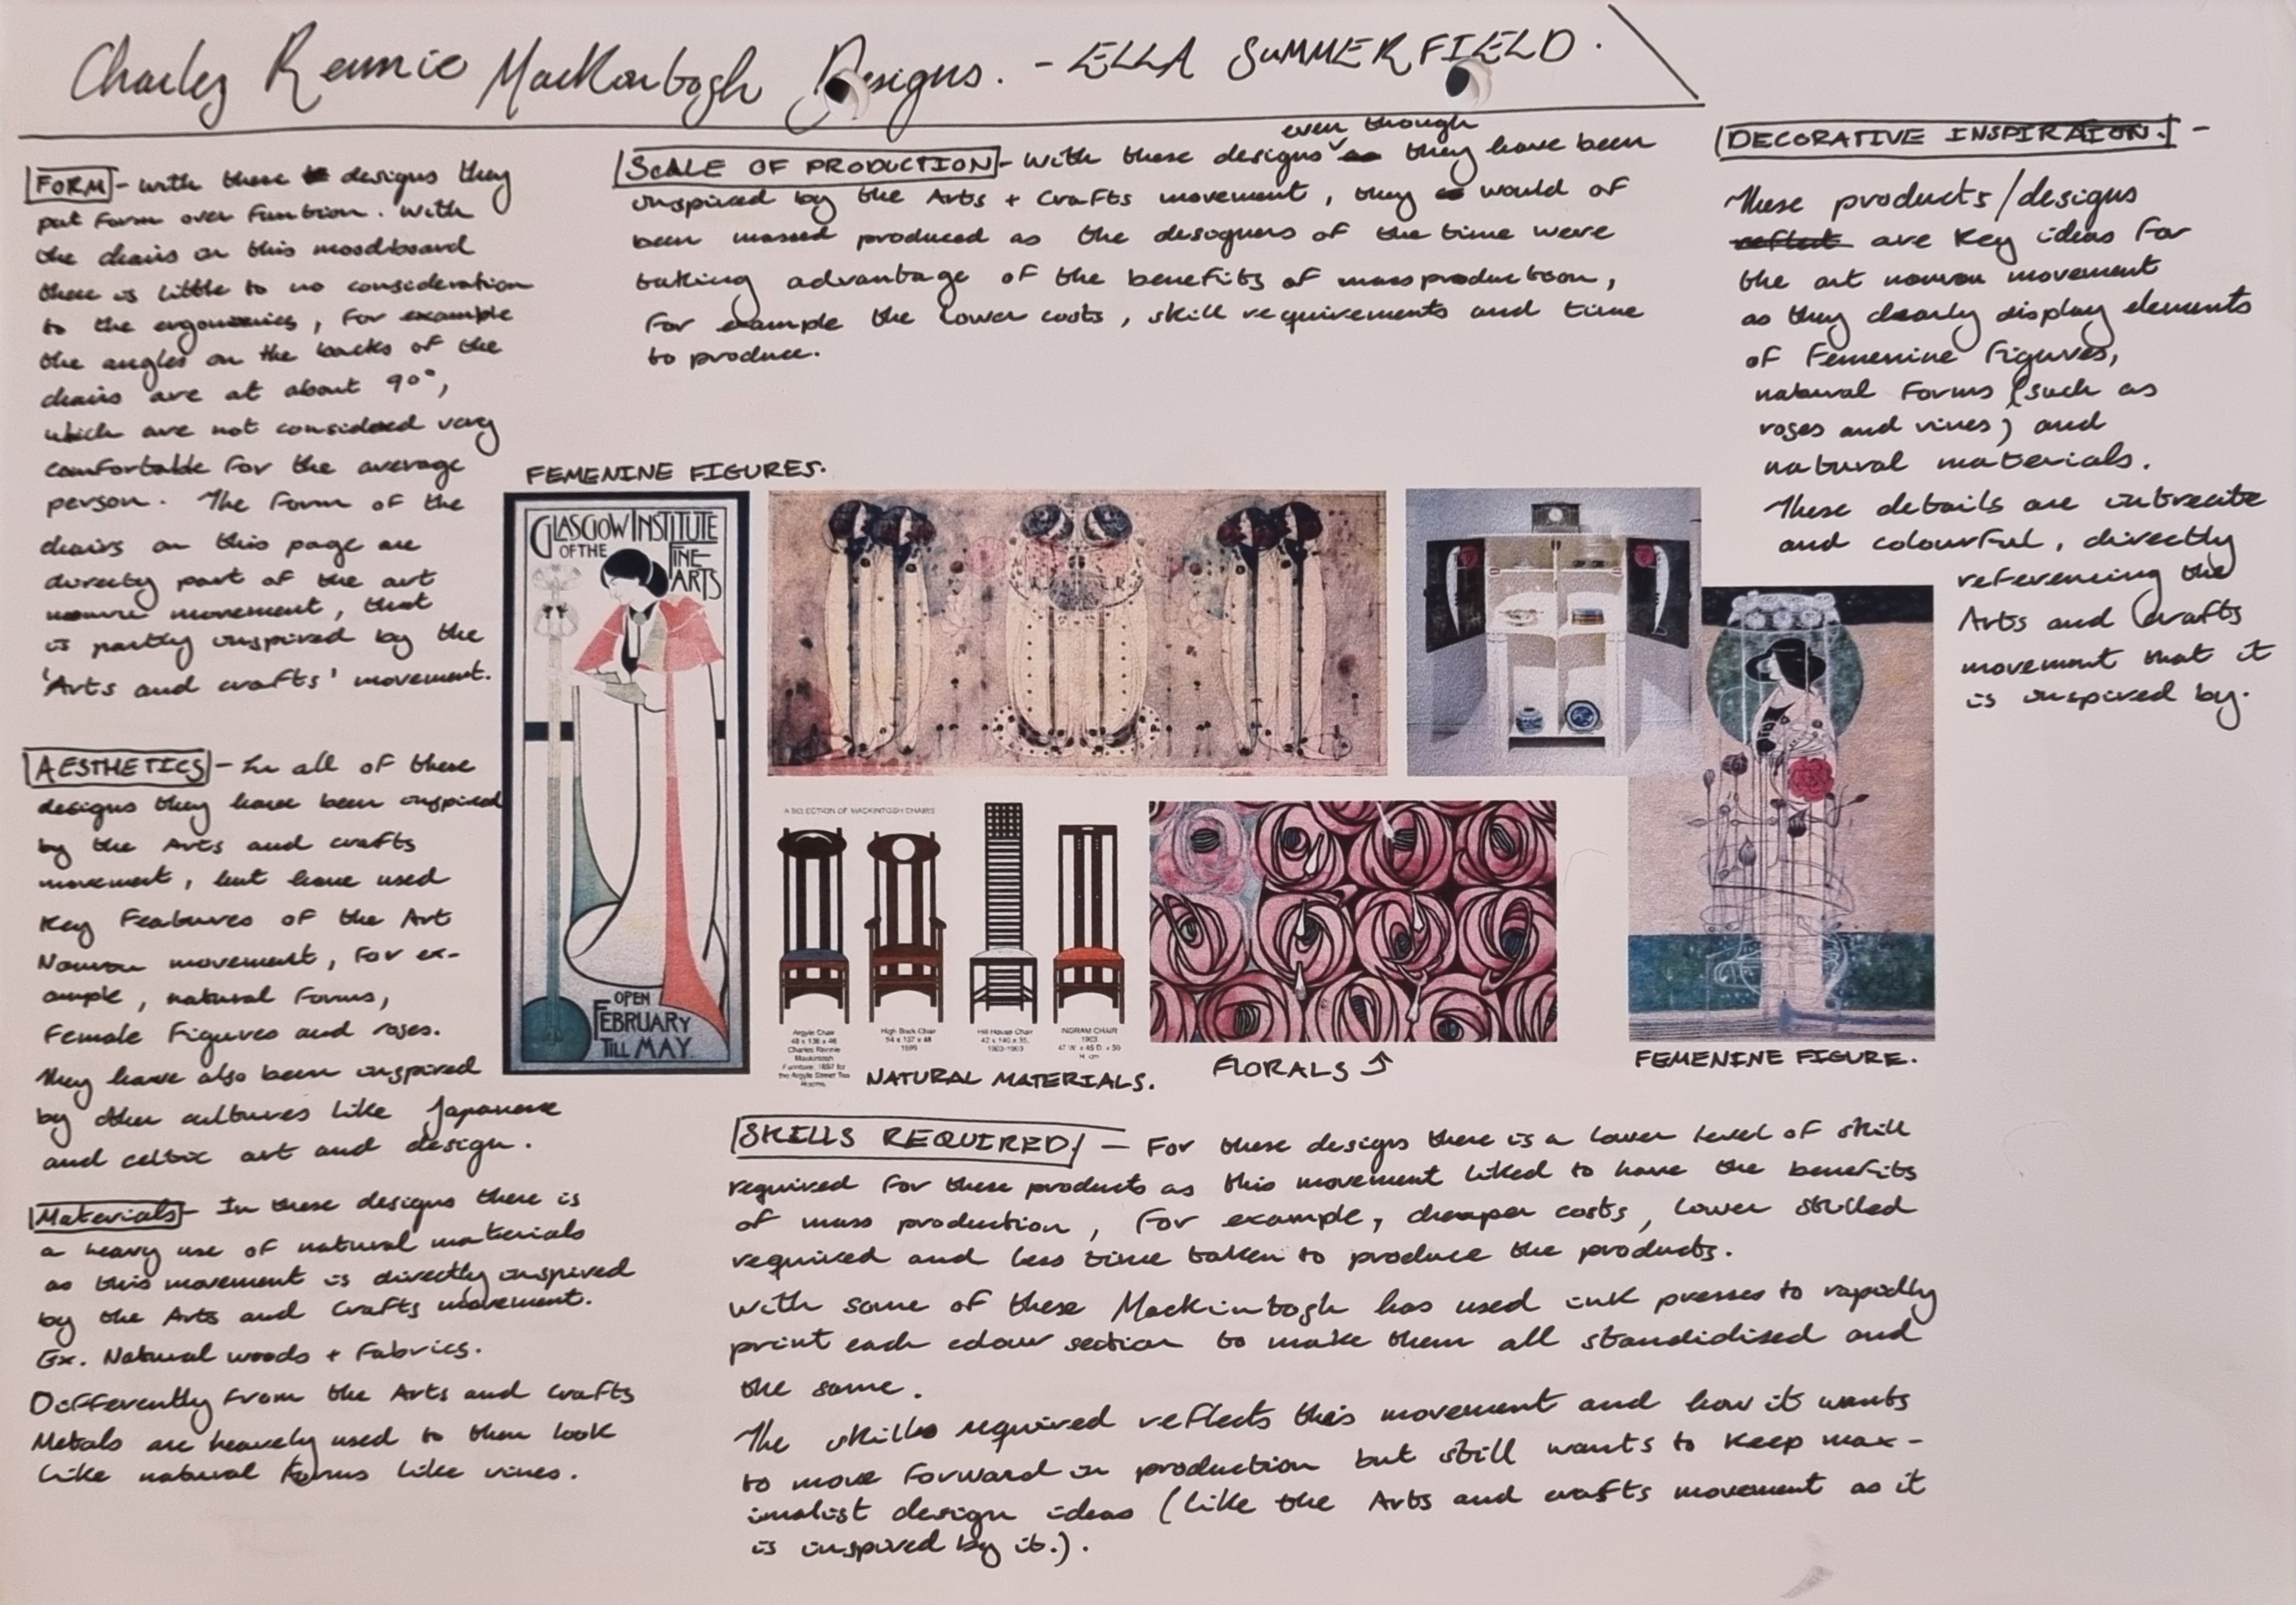 Charles Rennie Mackintosh Designs. - ELLA SUMMERFIELD.
FORM - with these designs they
put form over function. With
the chairs on this moodboard
there is little to no consideration
to the ergonomics, for example
the angles on the backs of the
chairs are at about 90°,
which are not considered very
comfortable for the average
person. The form of the
chairs on this page are
directly part of the art
nouveau movement, that
is partly inspired by the
'Arts and crafts' movement.
AESTHETICS - In all of these
designs they have been inspired
by the Arts and crafts
movement, but have used
Key Features of the Art
Nouveau movement, for ex-
ample, natural forms,
Female Figures and roses.
They have also been inspired
by other cultures like Japanese
and celtic art and design.
Materials - In these designs there is
a heavy use of natural materials
as this movement is directly inspired
by the Arts and Crafts movement.
Ex. Natural woods + Fabrics.
Differently from the Arts and Crafts
Metals are heavely used to them look
like natural forms like vines.
SCALE OF PRODUCTION - with these designs even though they have been
inspired by the Arts + Crafts movement, they would of
been massed produced as the designers of the time were
taking advantage of the benefits of mass production,
for example the lower costs, skill requirements and time
to produce.
DECORATIVE INSPIRATION. -
These products/designs
reflect are key ideas for
the art nouveau movement
as they clearly display elements
of femenine figures,
natural forms (such as
roses and vines) and
natural materials.
These details are intrecite
and colourful, directly
referencing the
Arts and Crafts
movement that it
is inspired by.
FEMENINE FIGURES.
GLASGOW INSTITUTE
OF THE FINE
ARTS
OPEN
FEBRUARY
TILL MAY
A SELECTION OF MACKINTOSH CHAIRS
Argyle Chair
48 x 136 x 46
Charles Rennie
Mackintosh
Furniture, 1897 for
the Argyle Street Tea
Rooms
High Back Chair
54 x 137 x 48
1899
Hill House Chair
42 x 140 x 35,
1902-1903
INGRAM CHAIR
1903
47 W. x 45 D. x 50
H cm
NATURAL MATERIALS.
FLORALS
FEMENINE FIGURE.
SKILLS REQUIRED. - For these designs there is a lower level of skill
required for these products as this movement liked to have the benefits
of mass production, for example, cheaper costs, lower skilled
required and less time taken to produce the products.
With some of these Mackintosh has used ink presses to rapidly
print each colour section to make them all standidised and
the same.
The skills required reflects this movement and how it wants
to move forward in production but still wants to keep max-
imalist design ideas (like the Arts and crafts movement as it
is inspired by it.).